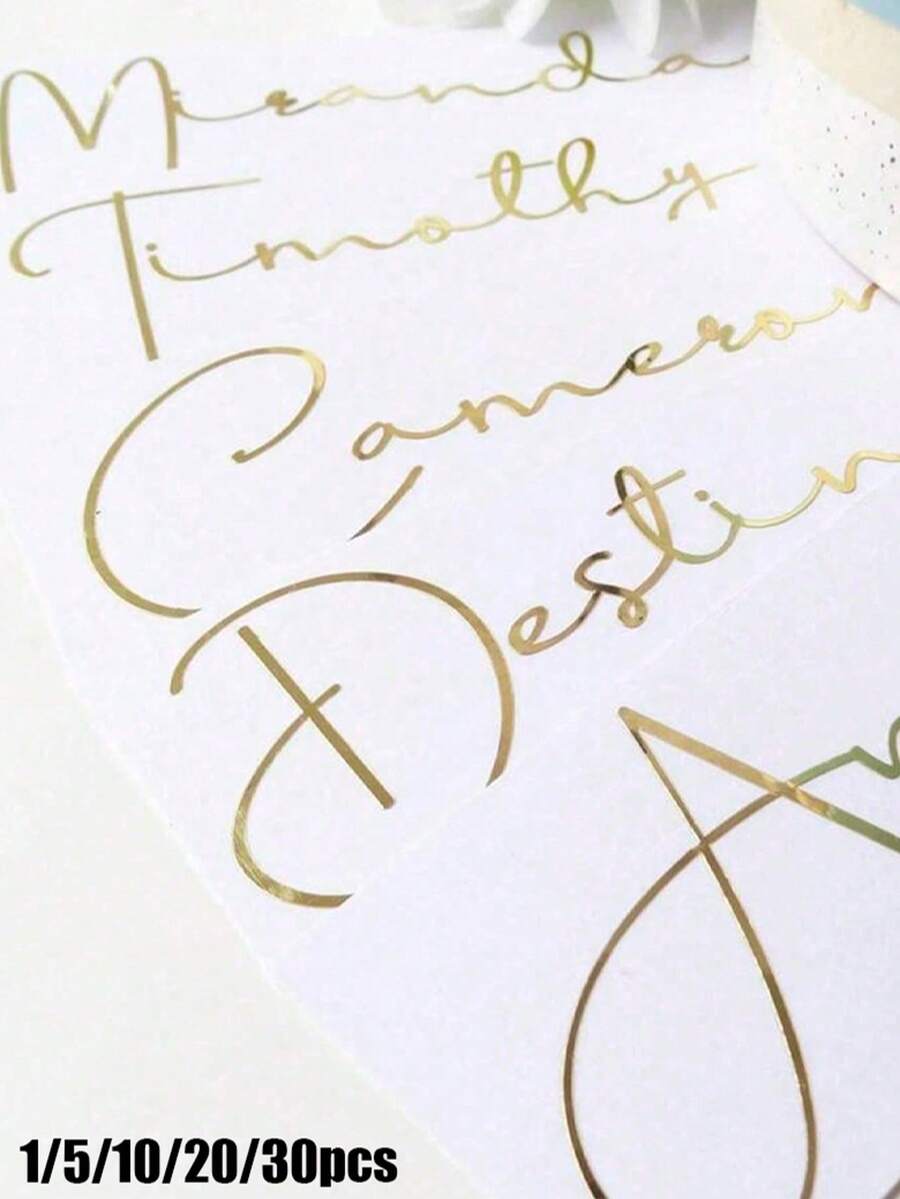 Miranda
Timothy
Cameron
Destin
1/5/10/20/30pcs